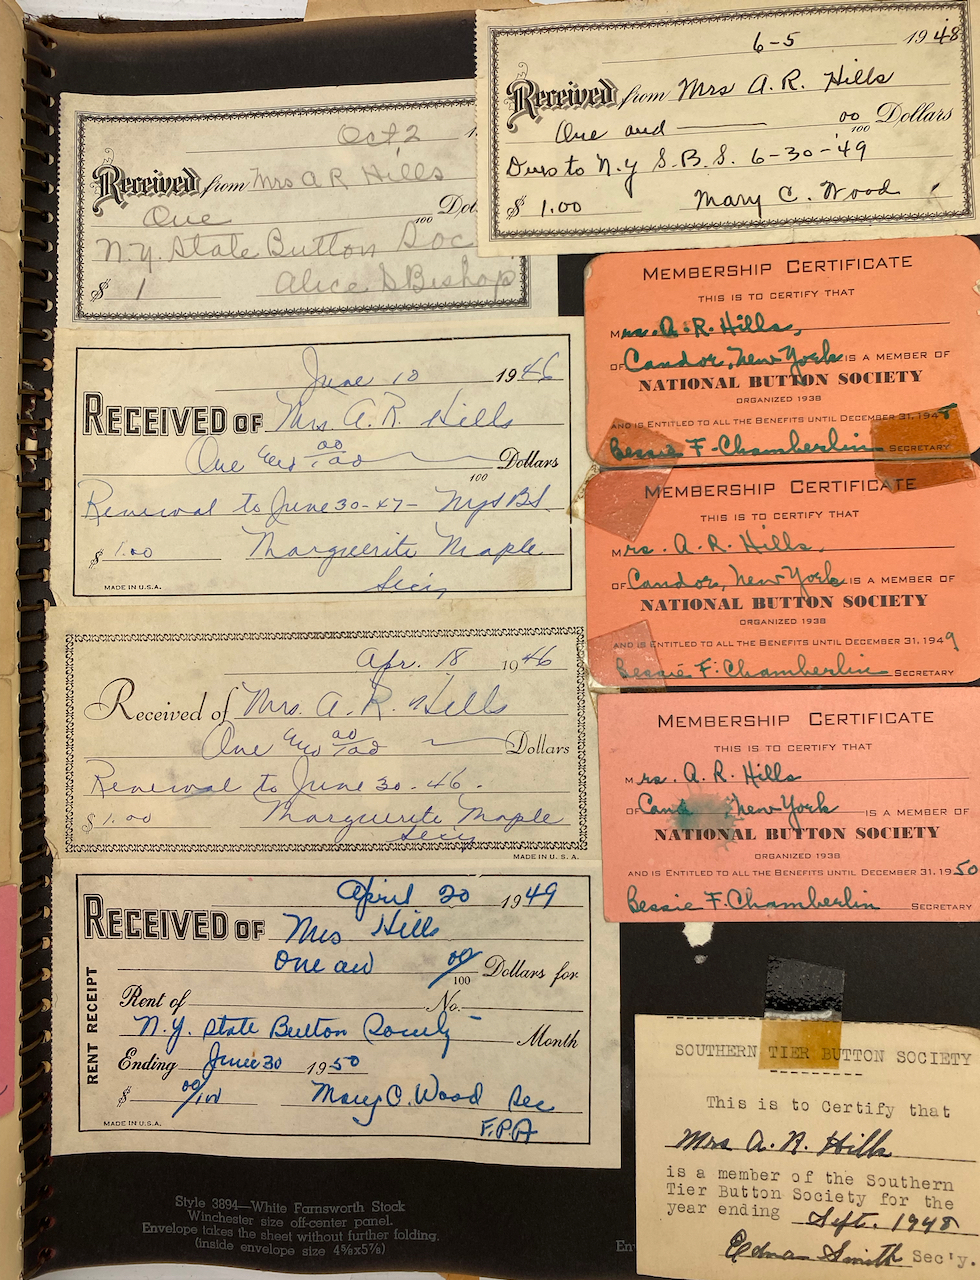 Oct, 2
Received from Mrs A R Hills
One
100 Dol
N.Y. State Button Soc
$ 1 Alice S Bishop
6-5 1948
Received from Mrs A. R. Hills
One and 00/100 Dollars
Dues to N.Y S.B.S. 6-30-'49
$ 1.00 Mary C. Wood
June 10 1946
RECEIVED OF Mrs. A. R. Hills
One and 00/100 Dollars
100
Renewal to June 30-47- NYSBS.
$ 1.00 Marguerite Maple
Secy,
MADE IN U.S.A.
Apr. 18 1946
Received of Mrs. A. R. Hills
One and 00/100 Dollars
Renewal to June 30-46.
$ 1.00 Marguerite Maple
Secy
MADE IN U. S. A.
RENT RECEIPT
April 20 1949
RECEIVED OF Mrs Hills
One and 00/100 Dollars for
Rent of No.
N.Y. State Button Society Month
Ending June 30 1950
$ 00/100 Mary C. Wood Sec
F.P.A
MADE IN U.S.A.
Style 3894—White Farnsworth Stock
Winchester size off-center panel.
Envelope takes the sheet without further folding.
(inside envelope size 4⅝x5⅞)
En
MEMBERSHIP CERTIFICATE
THIS IS TO CERTIFY THAT
Mrs. A. R. Hills,
OF Candor, New York IS A MEMBER OF
NATIONAL BUTTON SOCIETY
ORGANIZED 1938
AND IS ENTITLED TO ALL THE BENEFITS UNTIL DECEMBER 31, 1948
Bessie F. Chamberlin SECRETARY
MEMBERSHIP CERTIFICATE
THIS IS TO CERTIFY THAT
Mrs. A. R. Hills,
OF Candor, New York IS A MEMBER OF
NATIONAL BUTTON SOCIETY
ORGANIZED 1938
AND IS ENTITLED TO ALL THE BENEFITS UNTIL DECEMBER 31, 1949
Bessie F. Chamberlin SECRETARY
MEMBERSHIP CERTIFICATE
THIS IS TO CERTIFY THAT
Mrs. A. R. Hills
OF Cand New York IS A MEMBER OF
NATIONAL BUTTON SOCIETY
ORGANIZED 1938
AND IS ENTITLED TO ALL THE BENEFITS UNTIL DECEMBER 31, 1950
Bessie F. Chamberlin SECRETARY
SOUTHERN TIER BUTTON SOCIETY
This is to Certify that
Mrs A. R. Hills
is a member of the Southern
Tier Button Society for the
year ending Sept. 1948
Ednan Smith Sec'y.